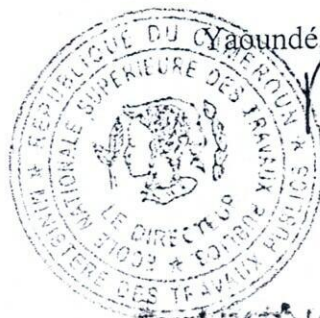 Yaoundé
REPUBLIQUE DU CAMEROUN
MINISTERE DES TRAVAUX PUBLICS
ECOLE NATIONALE SUPERIEURE DES TRAVAUX PUBLICS
LE DIRECTEUR